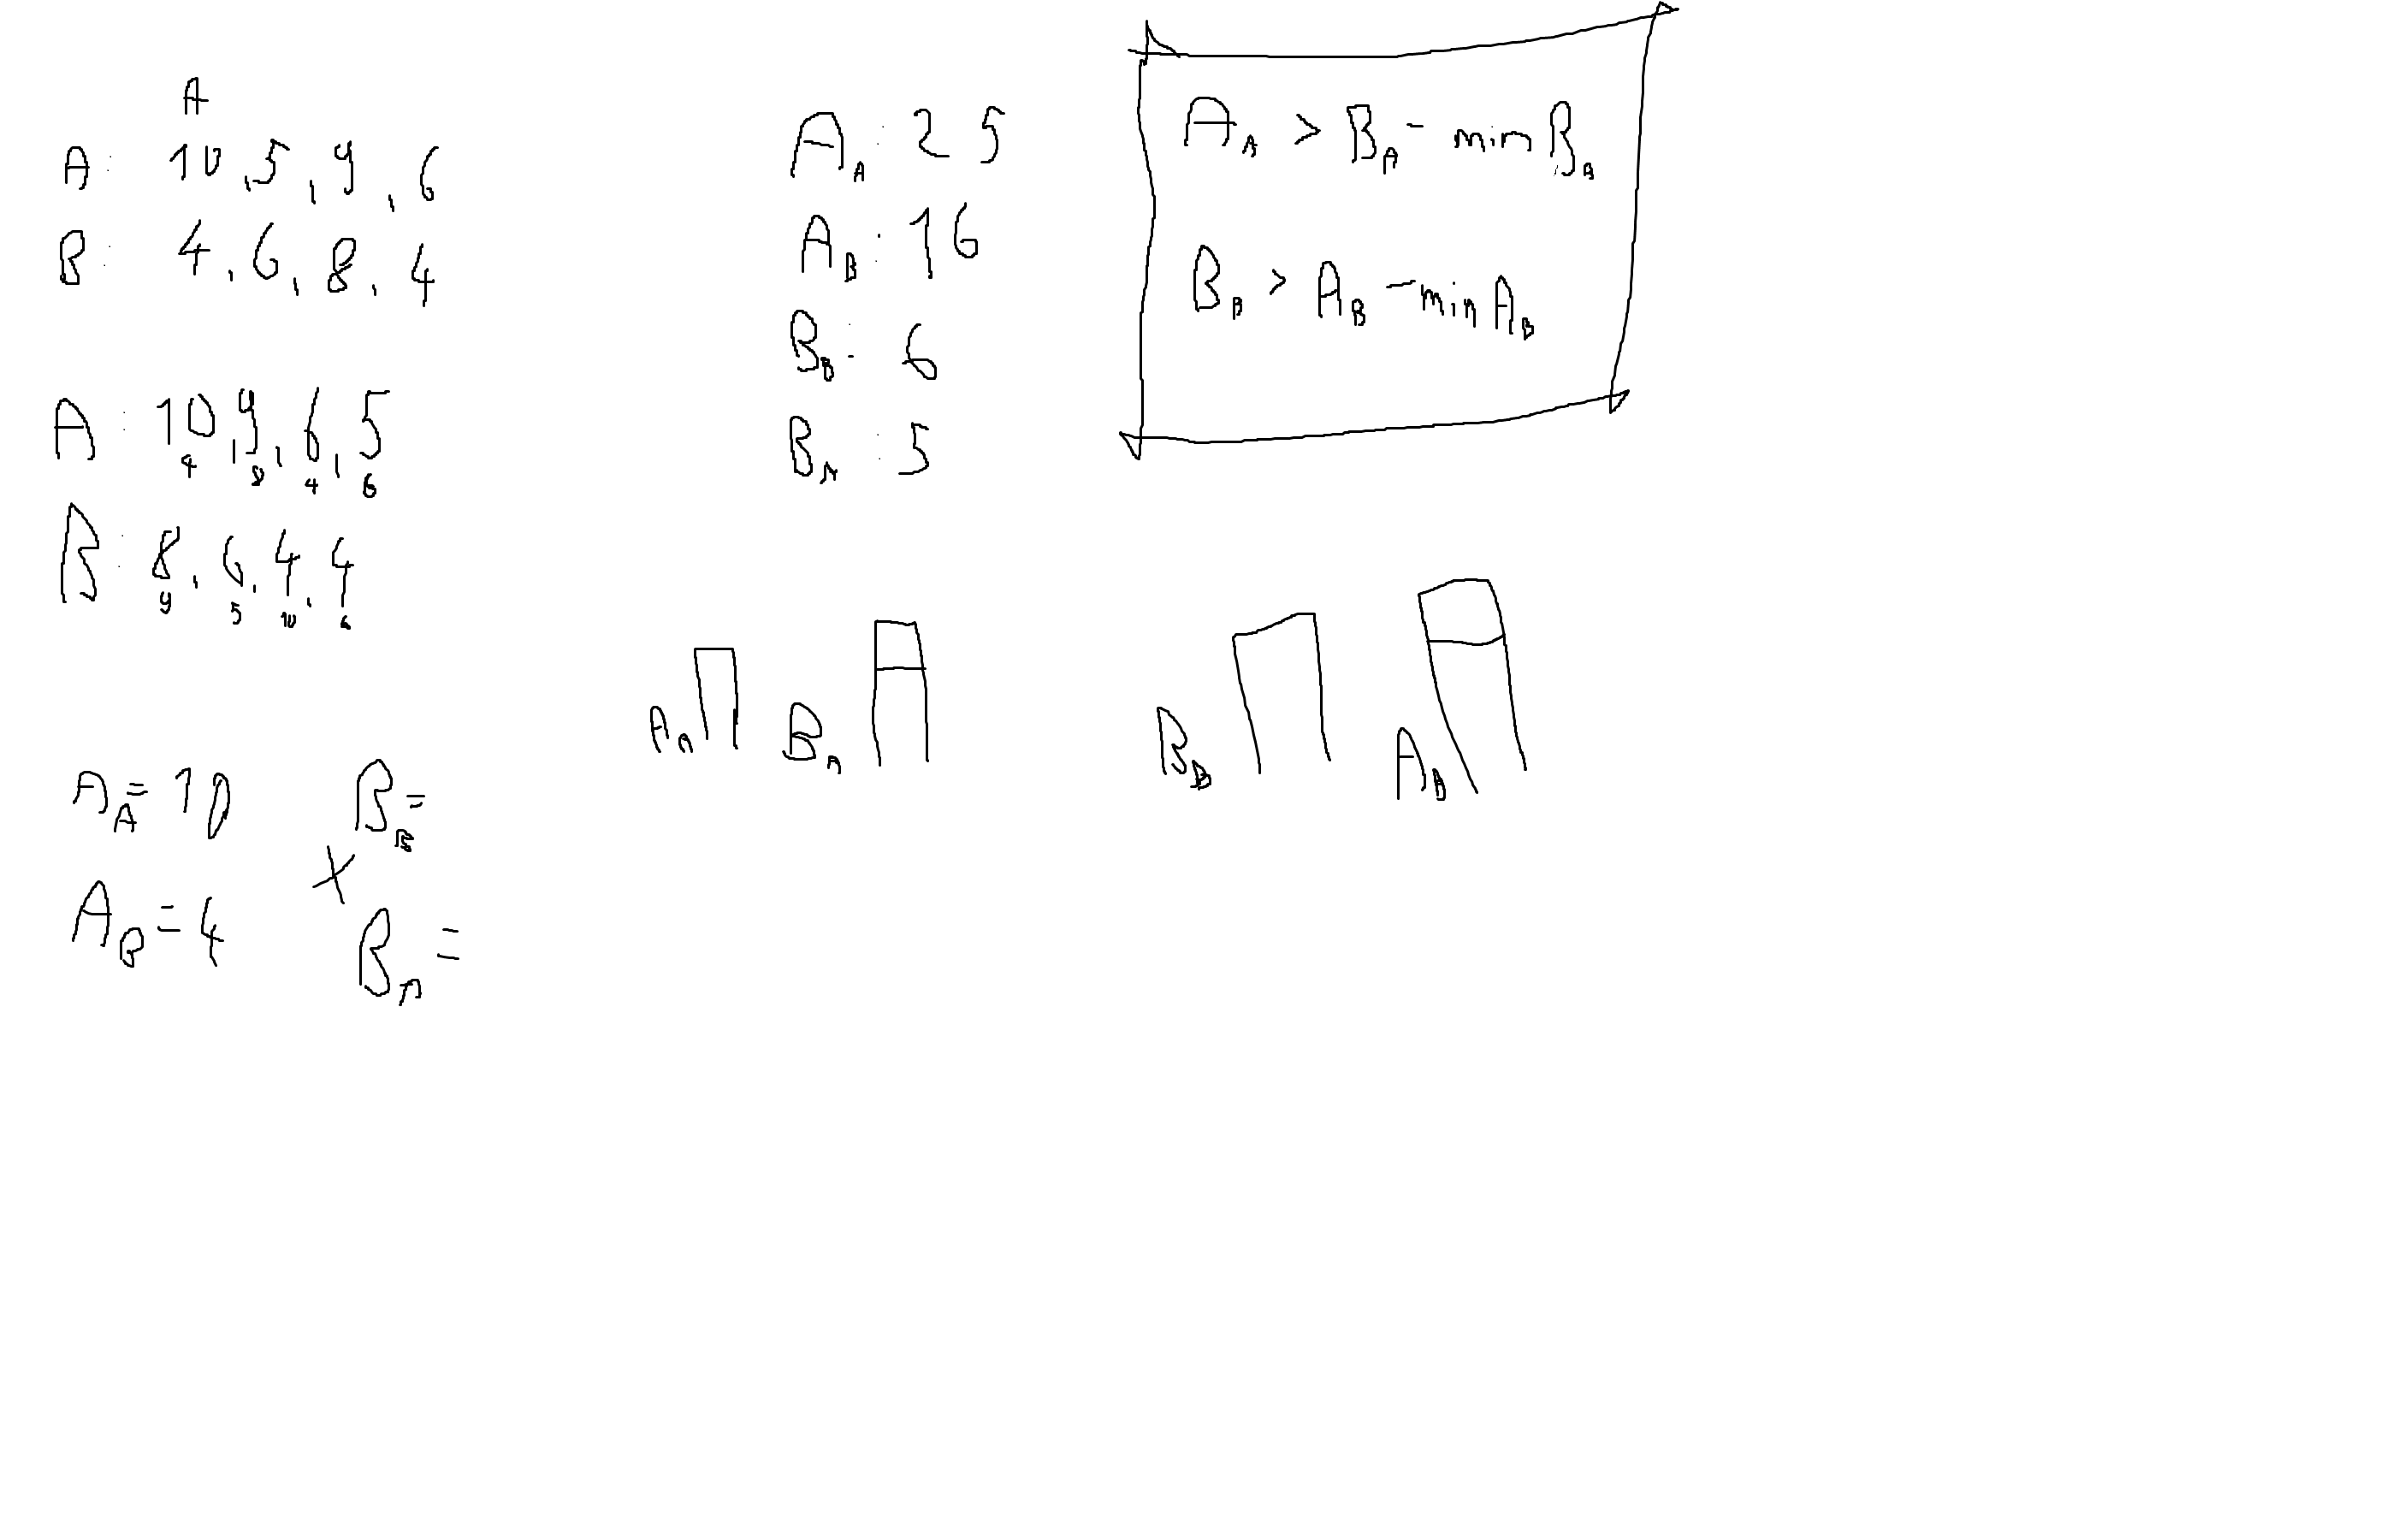 A
A: 10, 5, 9, 6
B: 4, 6, 8, 4
A: 10, 9, 6, 5
4 8 4 6
B: 8, 6, 4, 4
9 5 10 6
A_A = 10
A_B = 4
X
B_B =
B_A =
A_A: 25
A_B: 16
B_B: 6
B_A: 5
A_A > B_A - min B_A
B_B > A_B - min A_B
A_A
B_A
B_B
A_B